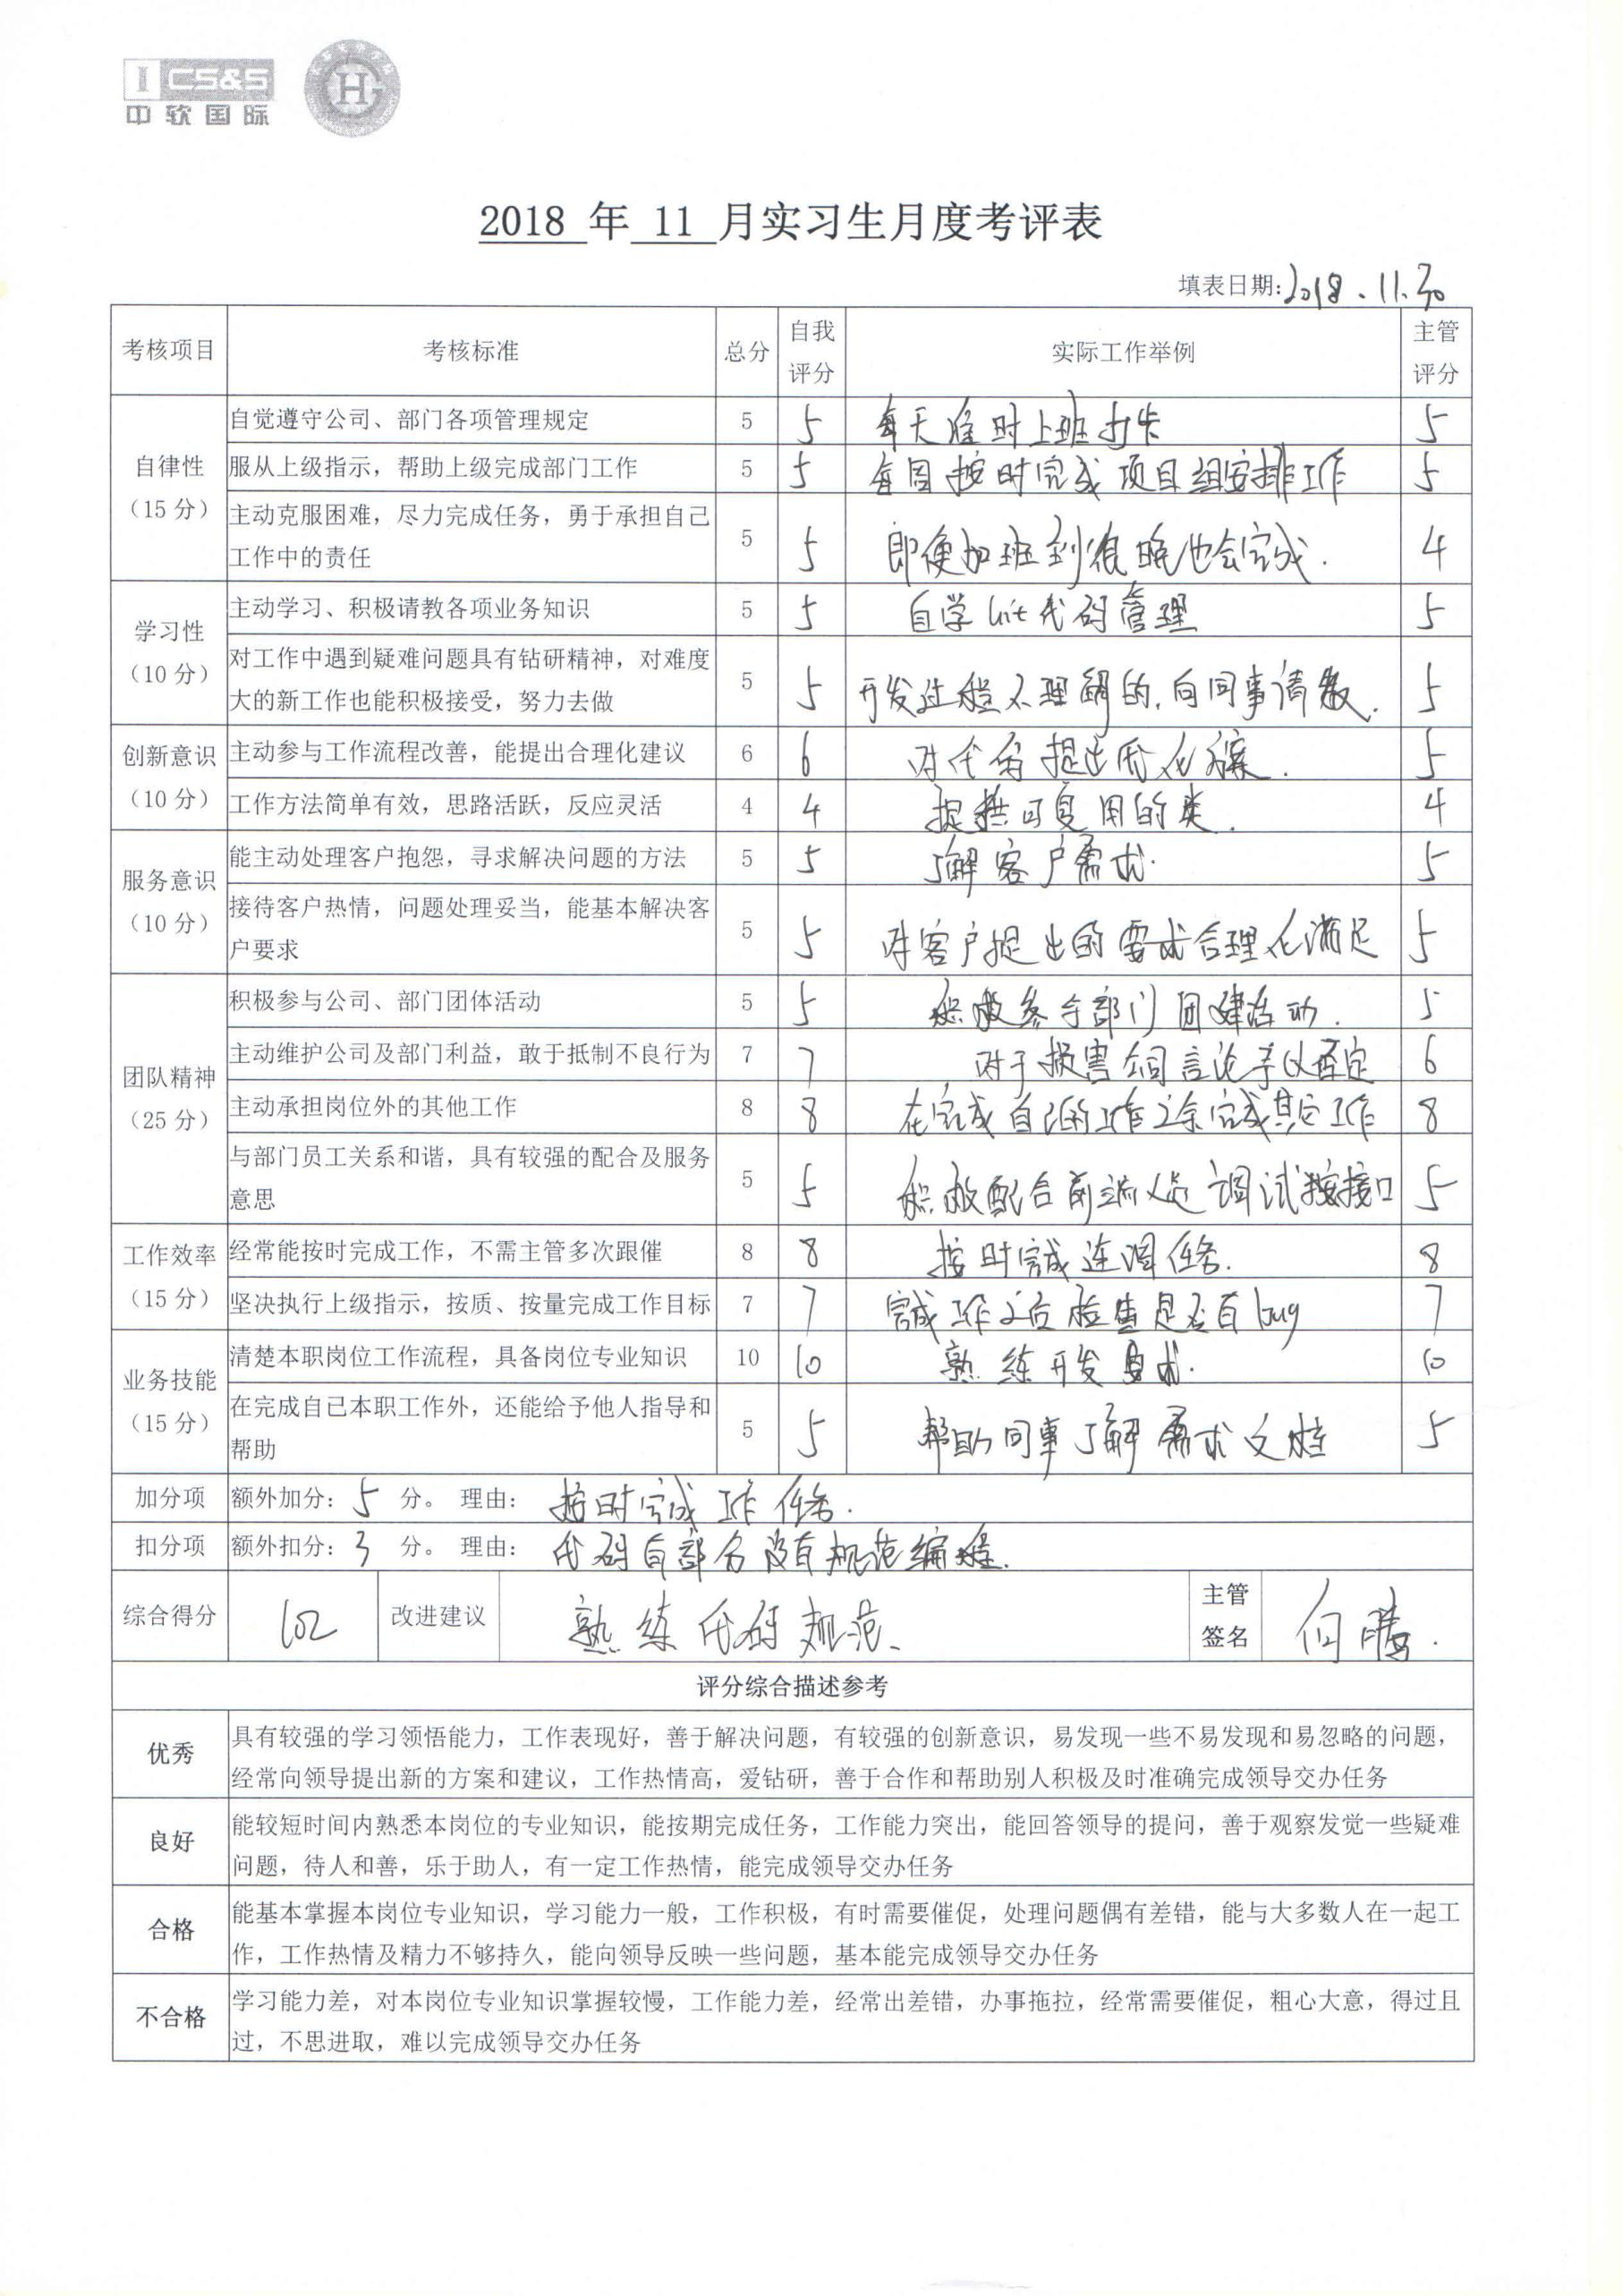 I CS&S
中软国际
H
2018 年 11 月实习生月度考评表
填表日期:2018.11.30
考核项目 考核标准 总分 自我评分 实际工作举例 主管评分
自律性（15 分）
自觉遵守公司、部门各项管理规定 5 5 每天准时上班打卡 5
服从上级指示，帮助上级完成部门工作 5 5 每周按时完成项目组安排工作 5
主动克服困难，尽力完成任务，勇于承担自己
工作中的责任 5 5 即便加班到很晚也会完成. 4
学习性（10 分）
主动学习、积极请教各项业务知识 5 5 自学Git代码管理 5
对工作中遇到疑难问题具有钻研精神，对难度
大的新工作也能积极接受，努力去做 5 5 开发过程不理解的,向同事请教. 5
创新意识（10 分）
主动参与工作流程改善，能提出合理化建议 6 6 对代码提出优化方案. 5
工作方法简单有效，思路活跃，反应灵活 4 4 提供可复用的类. 4
服务意识（10 分）
能主动处理客户抱怨，寻求解决问题的方法 5 5 了解客户需求. 5
接待客户热情，问题处理妥当，能基本解决客
户要求 5 5 对客户提出的要求合理化满足 5
团队精神（25 分）
积极参与公司、部门团体活动 5 5 积极参与部门团建活动. 5
主动维护公司及部门利益，敢于抵制不良行为 7 7 对于损害公司言论予以否定 6
主动承担岗位外的其他工作 8 8 在完成自己的工作之余完成其它工作 8
与部门员工关系和谐，具有较强的配合及服务
意思 5 5 积极配合前端人员调试接口 5
工作效率（15 分）
经常能按时完成工作，不需主管多次跟催 8 8 按时完成连调任务. 8
坚决执行上级指示，按质、按量完成工作目标 7 7 完成工作之后检查是否有bug 7
业务技能（15 分）
清楚本职岗位工作流程，具备岗位专业知识 10 10 熟练开发要求. 10
在完成自己本职工作外，还能给予他人指导和
帮助 5 5 帮助同事了解需求文档 5
加分项 额外加分：5 分。 理由：按时完成工作任务.
扣分项 额外扣分：3 分。 理由：代码有部分没有规范编程.
综合得分 102 改进建议 熟练代码规范、 主管签名 何腾.
评分综合描述参考
优秀 具有较强的学习领悟能力，工作表现好，善于解决问题，有较强的创新意识，易发现一些不易发现和易忽略的问题，
经常向领导提出新的方案和建议，工作热情高，爱钻研，善于合作和帮助别人积极及时准确完成领导交办任务
良好 能较短时间内熟悉本岗位的专业知识，能按期完成任务，工作能力突出，能回答领导的提问，善于观察发觉一些疑难
问题，待人和善，乐于助人，有一定工作热情，能完成领导交办任务
合格 能基本掌握本岗位专业知识，学习能力一般，工作积极，有时需要催促，处理问题偶有差错，能与大多数人在一起工
作，工作热情及精力不够持久，能向领导反映一些问题，基本能完成领导交办任务
不合格 学习能力差，对本岗位专业知识掌握较慢，工作能力差，经常出差错，办事拖拉，经常需要催促，粗心大意，得过且
过，不思进取，难以完成领导交办任务